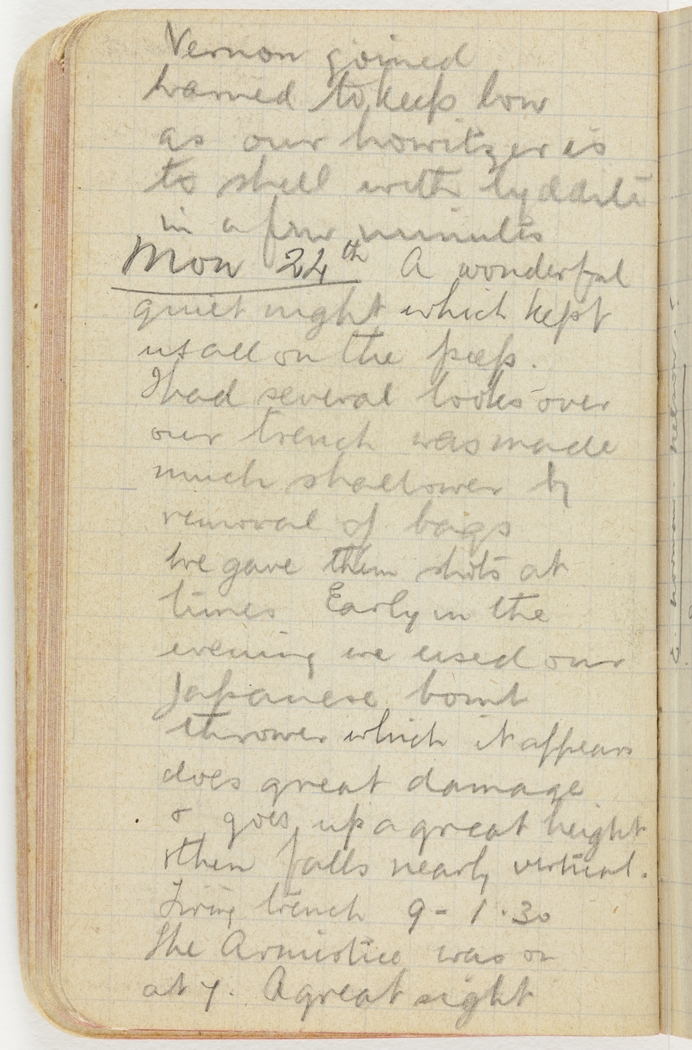 Vernon joined
warned to keep low
as our howitzer is
to shell with lyddite
in a few minutes
Mon 24th A wonderful
quiet night which kept
us all on the peep.
I had several looks over
our trench was made
much shallower by
removal of bags
We gave them shots at
times Early in the
evening we used our
Japanese bomb
thrower which it appears
does great damage
& goes up a great height
& then falls nearly vertical.
Firing trench 9 - 1.30
The Armistice was on
at 7. A great sight